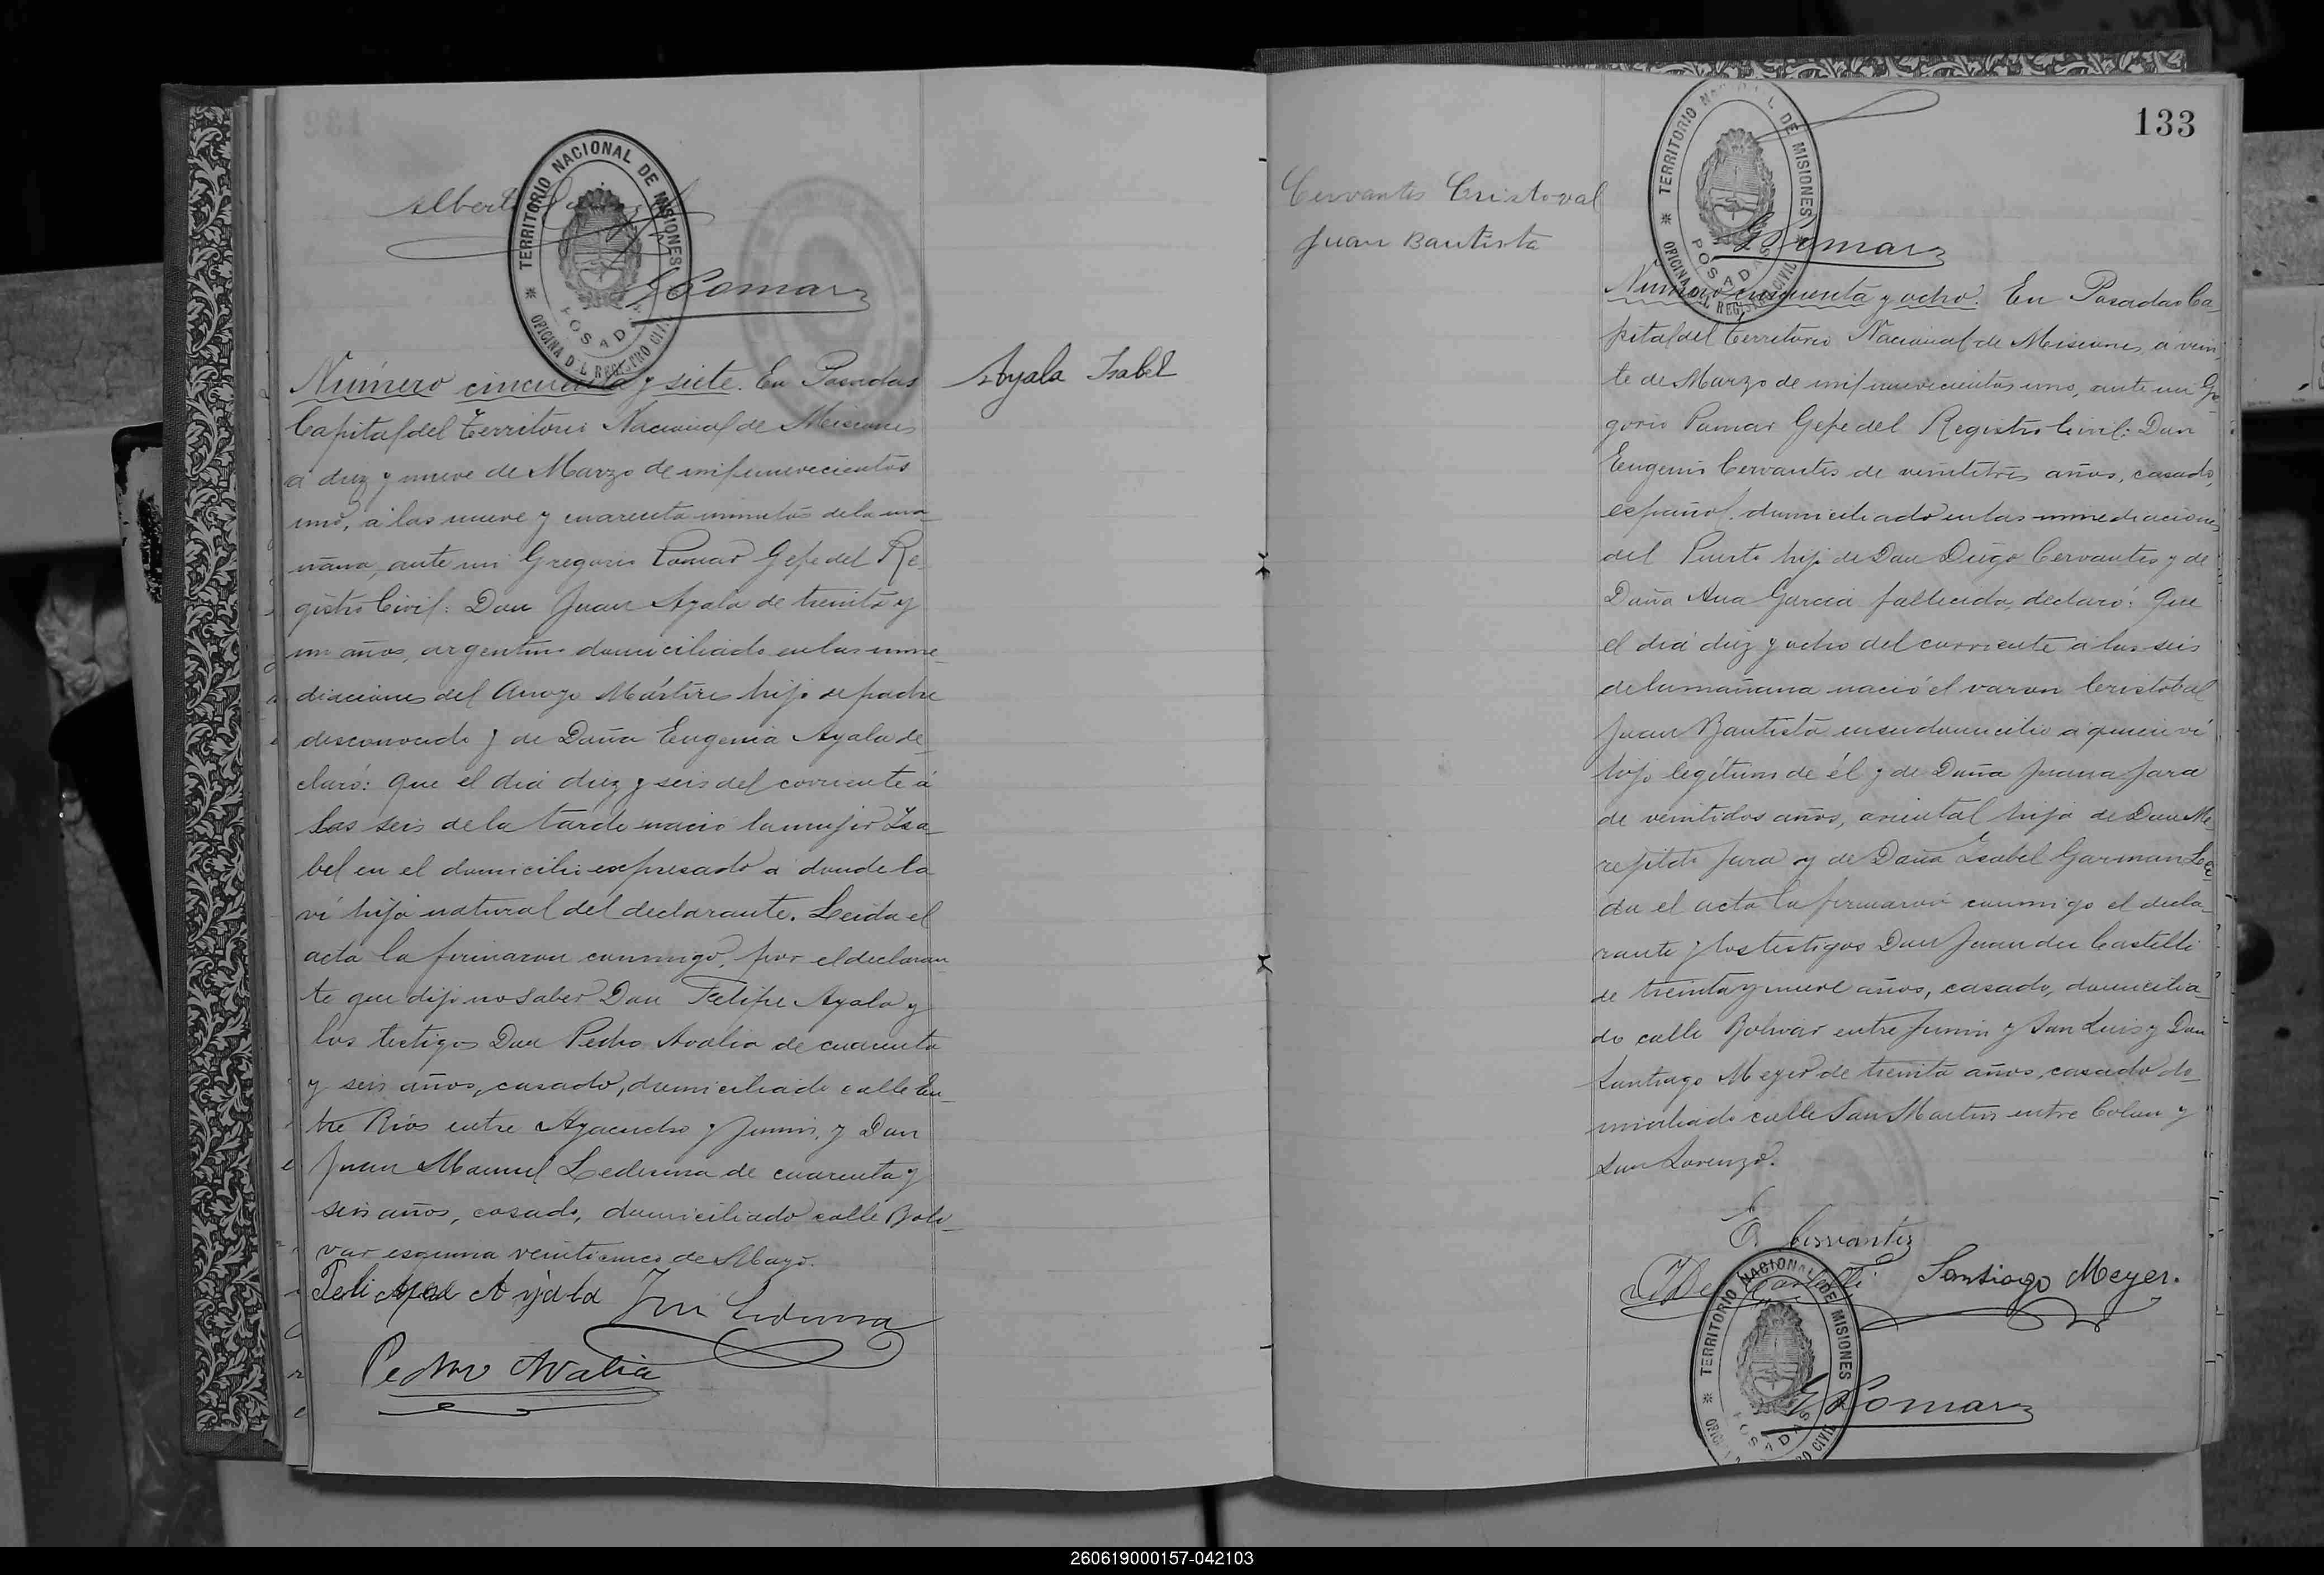 Alberto
TERRITORIO NACIONAL DE MISIONES
OFICINA DEL REGISTRO CIVIL
POSADAS
G Pomar
Número cincuenta y siete. En Posadas
Capital del Territorio Nacional de Misiones
á diez y nueve de Marzo de mil novecientos
uno, á las nueve y cuarenta minutos de la ma-
ñana, ante mi Gregorio Pomar Gefe del Re-
gistro Civil: Don Juan Ayala de treinta y
un años, argentino domiciliado en las inme-
diaciones del Arroyo Mártires hijo de padre
desconocido y de Doña Eugenia Ayala de-
claró: Que el dia diez y seis del corriente á
las seis de la tarde nació la mujer Isa-
bel en el domicilio expresado á donde la
ví hija natural del declarante. Leida el
acta la firmaron conmigo, por el declaran-
te que dijo no saber Don Felipe Ayala y
los testigos Don Pedro Avalia de cuarenta
y seis años, casado, domiciliado calle En-
tre Rios entre Ayacucho y Junin, y Don
Juan Manuel Ledesma de cuarenta y
seis años, casado, domiciliado calle Boli-
var esquina veinticinco de Mayo.
Ayala
Pedro Avalia
Ayala Isabel
133
Cervantes Cristoval
Juan Bautista
TERRITORIO NACIONAL DE MISIONES
OFICINA DEL REGISTRO CIVIL
POSADAS
G Pomar
Número cincuenta y ocho. En Posadas Ca-
pital del Territorio Nacional de Misiones, á vein-
te de Marzo de mil novecientos uno, ante mi Gre-
gorio Pomar Gefe del Registro Civil: Don
Eugenio Cervantes de veintitres años, casado,
español, domiciliado en las inmediaciones
del Puerto hijo de Don Diego Cervantes y de
Doña Ana Garcia fallecida, declaró: Que
el dia diez y ocho del corriente á las seis
de la mañana nació el varon Cristobal
Juan Bautista en su domicilio á quien ví
hijo legítimo de él y de Doña Juana Jara
de veintidos años, oriental hija de Don
Jara y de Doña Isabel Lei-
da el acta la firmaron conmigo el decla-
rante y los testigos Don Juan de Castelli
de treinta y nueve años, casado, domicilia-
do calle Bolivar entre Junin y San Luis y Don
Santiago Meyer de treinta años, casado do-
miciliado calle San Martin entre Colon y
San Lorenzo.
E Cervantes
Santiago Meyer.
TERRITORIO NACIONAL DE MISIONES
POSADAS
G Pomar
260619000157-042103